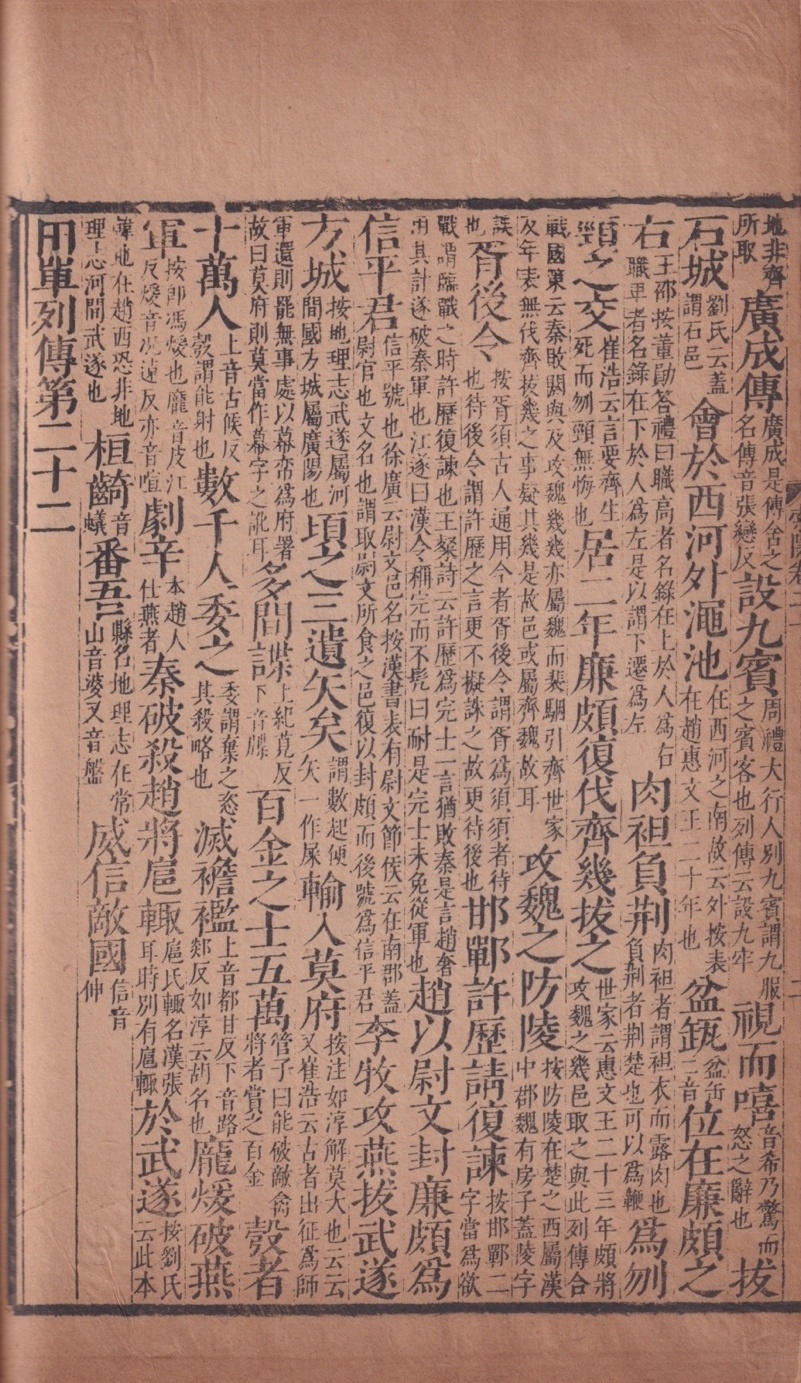 地非齊所取廣成傳廣成是傳舍之名傳音張戀反設九賓周禮大行人別九賓謂九服之賓客也列傳云設九牢視而嘻音希乃驚而怒之辭也拔
石城劉氏云蓋謂石邑會於西河外澠池在西河之南故云外按表在趙惠文王二十年也盆缻盆缶二音位在廉頗之
右王邵按董勛答禮曰職高者名錄在上於人爲右職卑者名錄在下於人爲左是以謂下遷爲左肉袒負荆肉袒者謂袒衣而露肉也負荆者荆楚也可以爲鞭爲刎
頸之交崔浩云言要齊生死而刎頸無悔也居二年廉頗復伐齊幾拔之世家云惠文王二十三年頗將攻魏之幾邑取之與此列傳合
戰國策云秦敗閼與及攻魏幾幾亦屬魏而裴駰引齊世家及年表無伐齊拔幾之事疑其幾是故邑或屬齊魏故耳攻魏之防陵按防陵在楚之西屬漢中郡魏有房子蓋陵字
誤也胥後令按胥須古人通用今者胥後令謂胥爲須須者待也待後令謂許歷之言更不擬誅之故更待後也邯鄲許歷請復諫按邯鄲二字當爲欲
戰謂臨戰之時許歷復諫也王粲詩云許歷爲完士一言猶敗秦是言趙奢用其計遂破秦軍也江遂曰漢令稱完而不髡曰耐是完士未免從軍也趙以尉文封廉頗爲
信平君信平號也徐廣云尉文邑名按漢書表有尉文節侯云在南郡蓋尉官也文名也謂取尉文所食之邑復以封頗而後號爲信平君李牧攻燕拔武遂
方城按地理志武遂屬河間國方城屬廣陽也頃之三遺矢矣謂數起便矢一作屎輸入莫府按注如淳解莫大也云云又崔浩云古者出征爲師
軍還則罷無事處以幕帟爲府署故曰莫府則莫當作幕字之訛耳多間諜上紀莧反下音牒百金之士五萬管子曰能破敵禽將者賞之百金彀者
十萬人上音古候反彀謂能射也數千人委之委謂棄之恣其殺略也滅襜襤上音都甘反下音路郯反如淳云胡名也龐煖破燕
軍按即馮煖也龐音皮江反煖音况遠反亦音喧劇辛本趙人仕燕者秦破殺趙將扈輒扈氏輒名漢張耳時別有扈輒於武遂按劉氏云此本
韓地在趙西恐非地理志河間武遂也桓齮音蟻番吾縣名地理志在常山音婆又音盤威信敵國信音伸
田單列傳第二十二